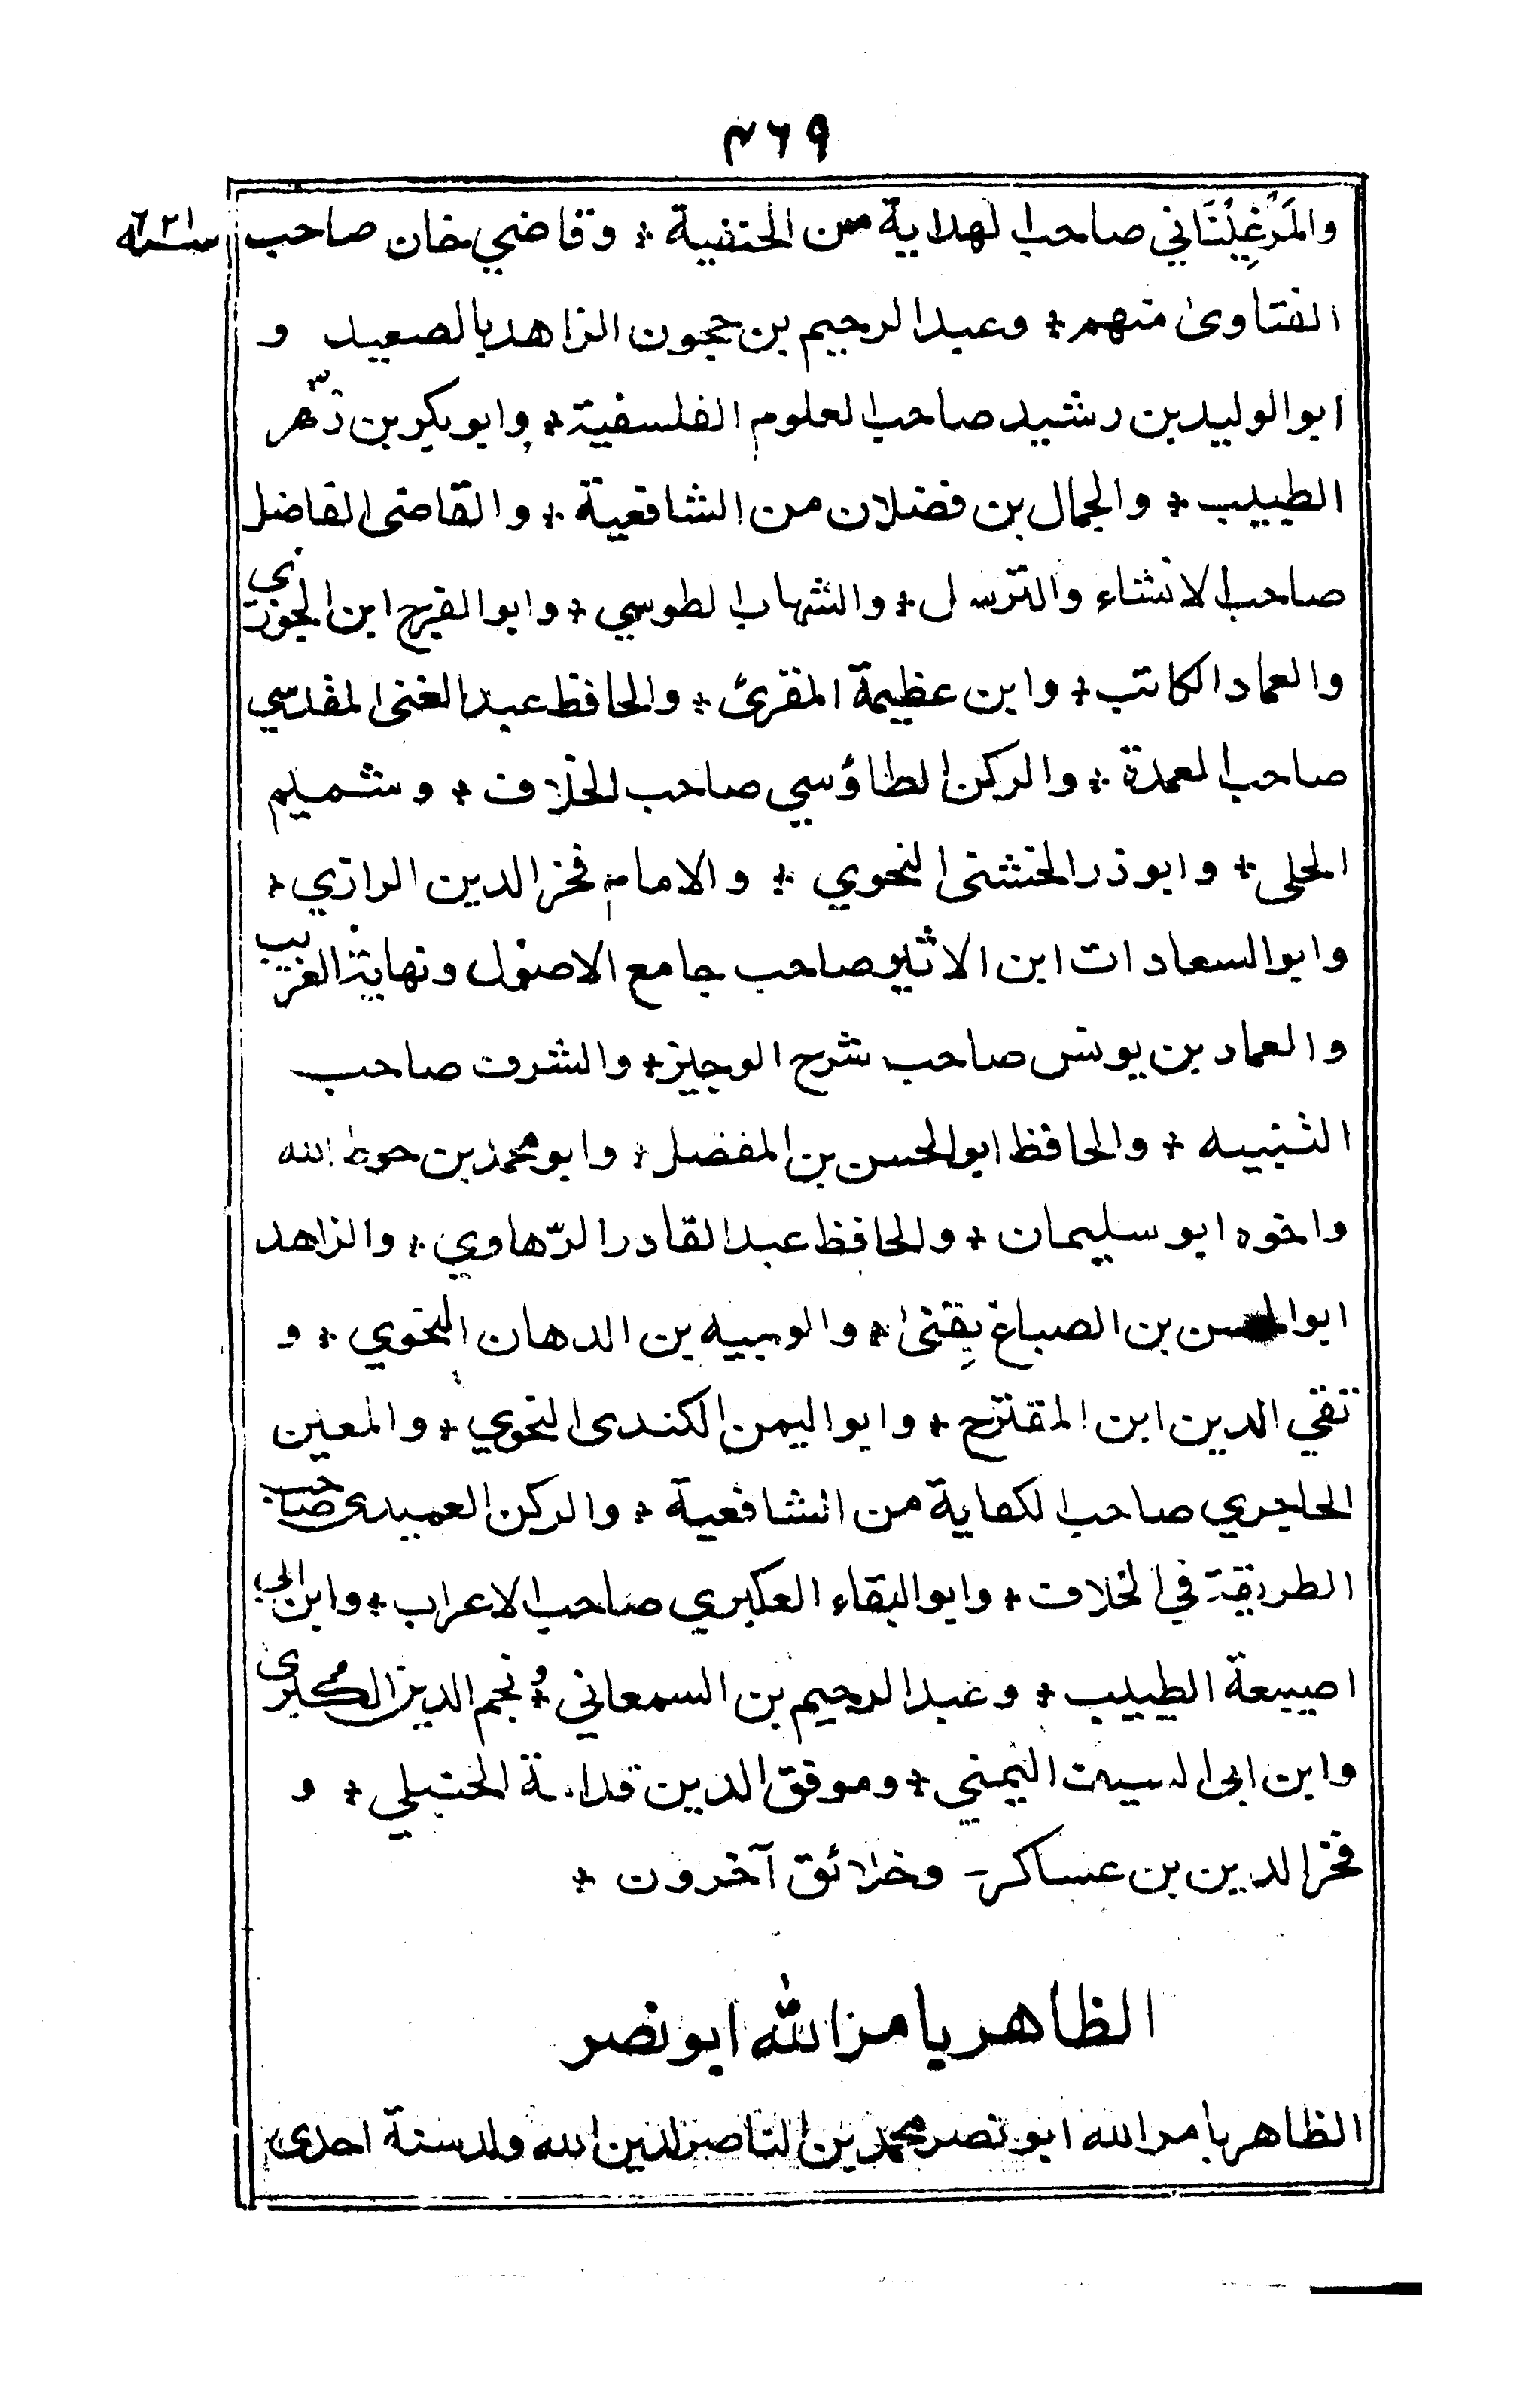 ۴۶۹
والمَرْغِيْنَاني صاحب الهداية من الحنفية * وقاضي خان صاحب
الفتاوى منهم * وعبد الرحيم بن حجون الزاهد بالصعيد و
ابو الوليد بن رشيد صاحب العلوم الفلسفية * وابو بكر بن زهر
الطبيب * والجمال بن فضلان من الشافعية * والقاضى الفاضل
صاحب الانشاء والترسل * والشهاب الطوسي * وابو الفرج ابن الجوزي
والعماد الكاتب * وابن عظيمة المقرئ * والحافظ عبد الغنى المقدسي
صاحب العمدة * والركن الطاؤسي صاحب الخلاف * وشميم
الحلى * وابو ذر الخشنى النحوي * والامام فخر الدين الرازي *
وابو السعادات ابن الاثير صاحب جامع الاصول ونهاية الغريب
والعماد بن يونس صاحب شرح الوجيز * والشرف صاحب
التنبيه * والحافظ ابو الحسن بن المفضل * وابو محمد بن حوط الله
واخوه ابو سليمان * والحافظ عبد القادر الرّهاوي * والزاهد
ابو الحسن بن الصباغ بِقنى * والوجيه بن الدهان النحوي * و
تقي الدين ابن المقترح * وابو اليمن الكندى النحوي * والمعين
الحاجري صاحب الكفاية من الشافعية * والركن العميدى صاحب
الطريقة في الخلاف * وابو البقاء العكبري صاحب الاعراب * وابن ابي
اصيبعة الطبيب * وعبد الرحيم بن السمعاني * ونجم الدين الكبرى
وابن ابى الصيف اليمني * وموفق الدين قدامة الحنبلي * و
فخر الدين بن عساكر - وخلائق آخرون *
الظاهر بامر الله ابو نصر
الظاهر بامر الله ابو نصر محمد بن الناصر لدين الله ولد سنة احدى